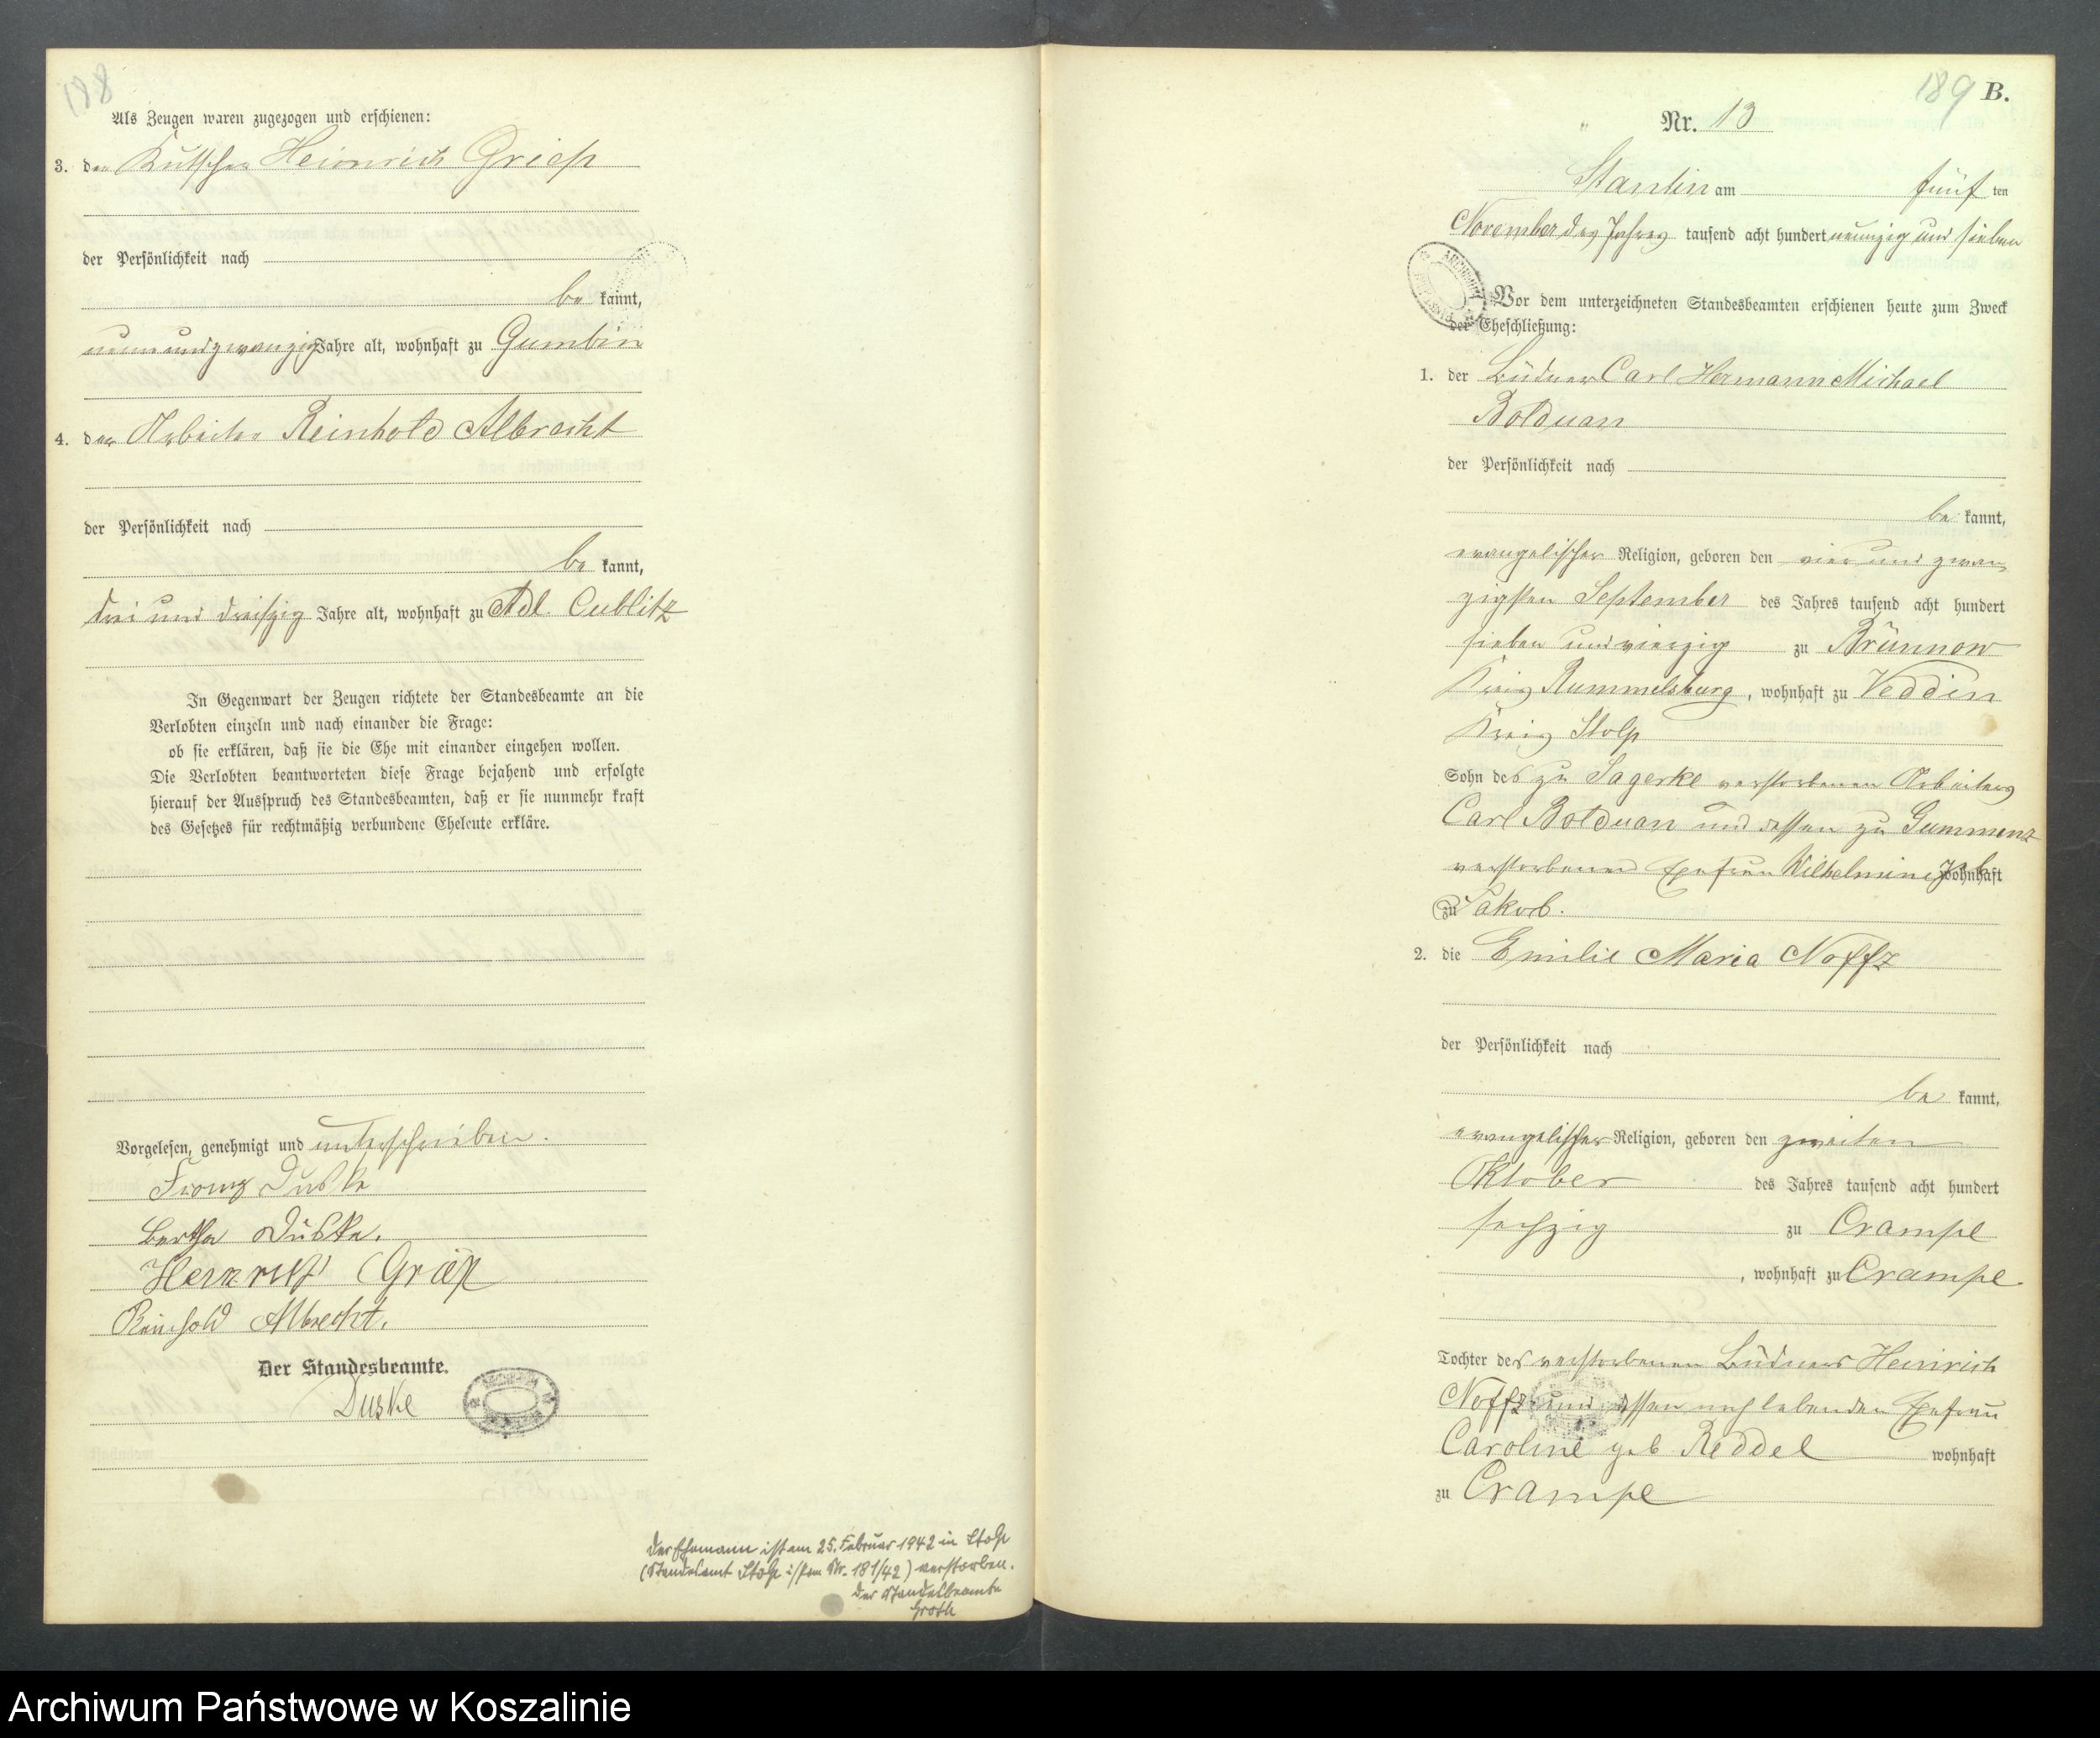 188
Als Zeugen waren zugezogen und erschienen:
3. der Kutscher Heinrich Griep
der Persönlichkeit nach
be kannt,
neun und zwanzig Jahre alt, wohnhaft zu Gumbin
4. der Arbeiter Reinhold Albrecht
der Persönlichkeit nach
be kannt,
drei und dreißig Jahre alt, wohnhaft zu Adl. Cublitz
In Gegenwart der Zeugen richtete der Standesbeamte an die
Verlobten einzeln und nach einander die Frage:
ob sie erklären, daß sie die Ehe mit einander eingehen wollen.
Die Verlobten beantworteten diese Frage bejahend und erfolgte
hierauf der Ausspruch des Standesbeamten, daß er sie nunmehr kraft
des Gesetzes für rechtmäßig verbundene Eheleute erkläre.
Vorgelesen, genehmigt und unterschrieben.
Franz Duske
Bertha Duske.
Heinrich Griep
Reinhold Albrecht.
Der Standesbeamte.
Duske
Der Ehemann ist am 25. Februar 1942 in Stolp
(Standesamt Stolp i/Pom Nr. 181/42) verstorben.
Der Standesbeamte
Groth
189 B.
Nr. 13
Stantin am fünf ten
November des Jahres tausend acht hundert neunzig und sieben
Vor dem unterzeichneten Standesbeamten erschienen heute zum Zweck
der Eheschließung:
1. der Büdner Carl Hermann Michael
Bolduan
der Persönlichkeit nach
be kannt,
evangelischer Religion, geboren den vier und zwan
zigsten September des Jahres tausend acht hundert
sieben und vierzig zu Brünnow
Kreis Rummelsburg, wohnhaft zu Veddin
Kreis Stolp
Sohn des zu Sagerke verstorbenen Arbeiters
Carl Bolduan und dessen zu Gummenz
verstorbenen Ehefrau Wilhelmine geb wohnhaft
zu Jakob.
2. die Emilie Maria Noffz
der Persönlichkeit nach
be kannt,
evangelischer Religion, geboren den zweiten
Oktober des Jahres tausend acht hundert
sechzig zu Crampe
, wohnhaft zu Crampe
Tochter des verstorbenen Büdners Heinrich
Noffz und dessen noch lebenden Ehefrau
Caroline geb Reddel wohnhaft
zu Crampe
Archiwum Państwowe w Koszalinie